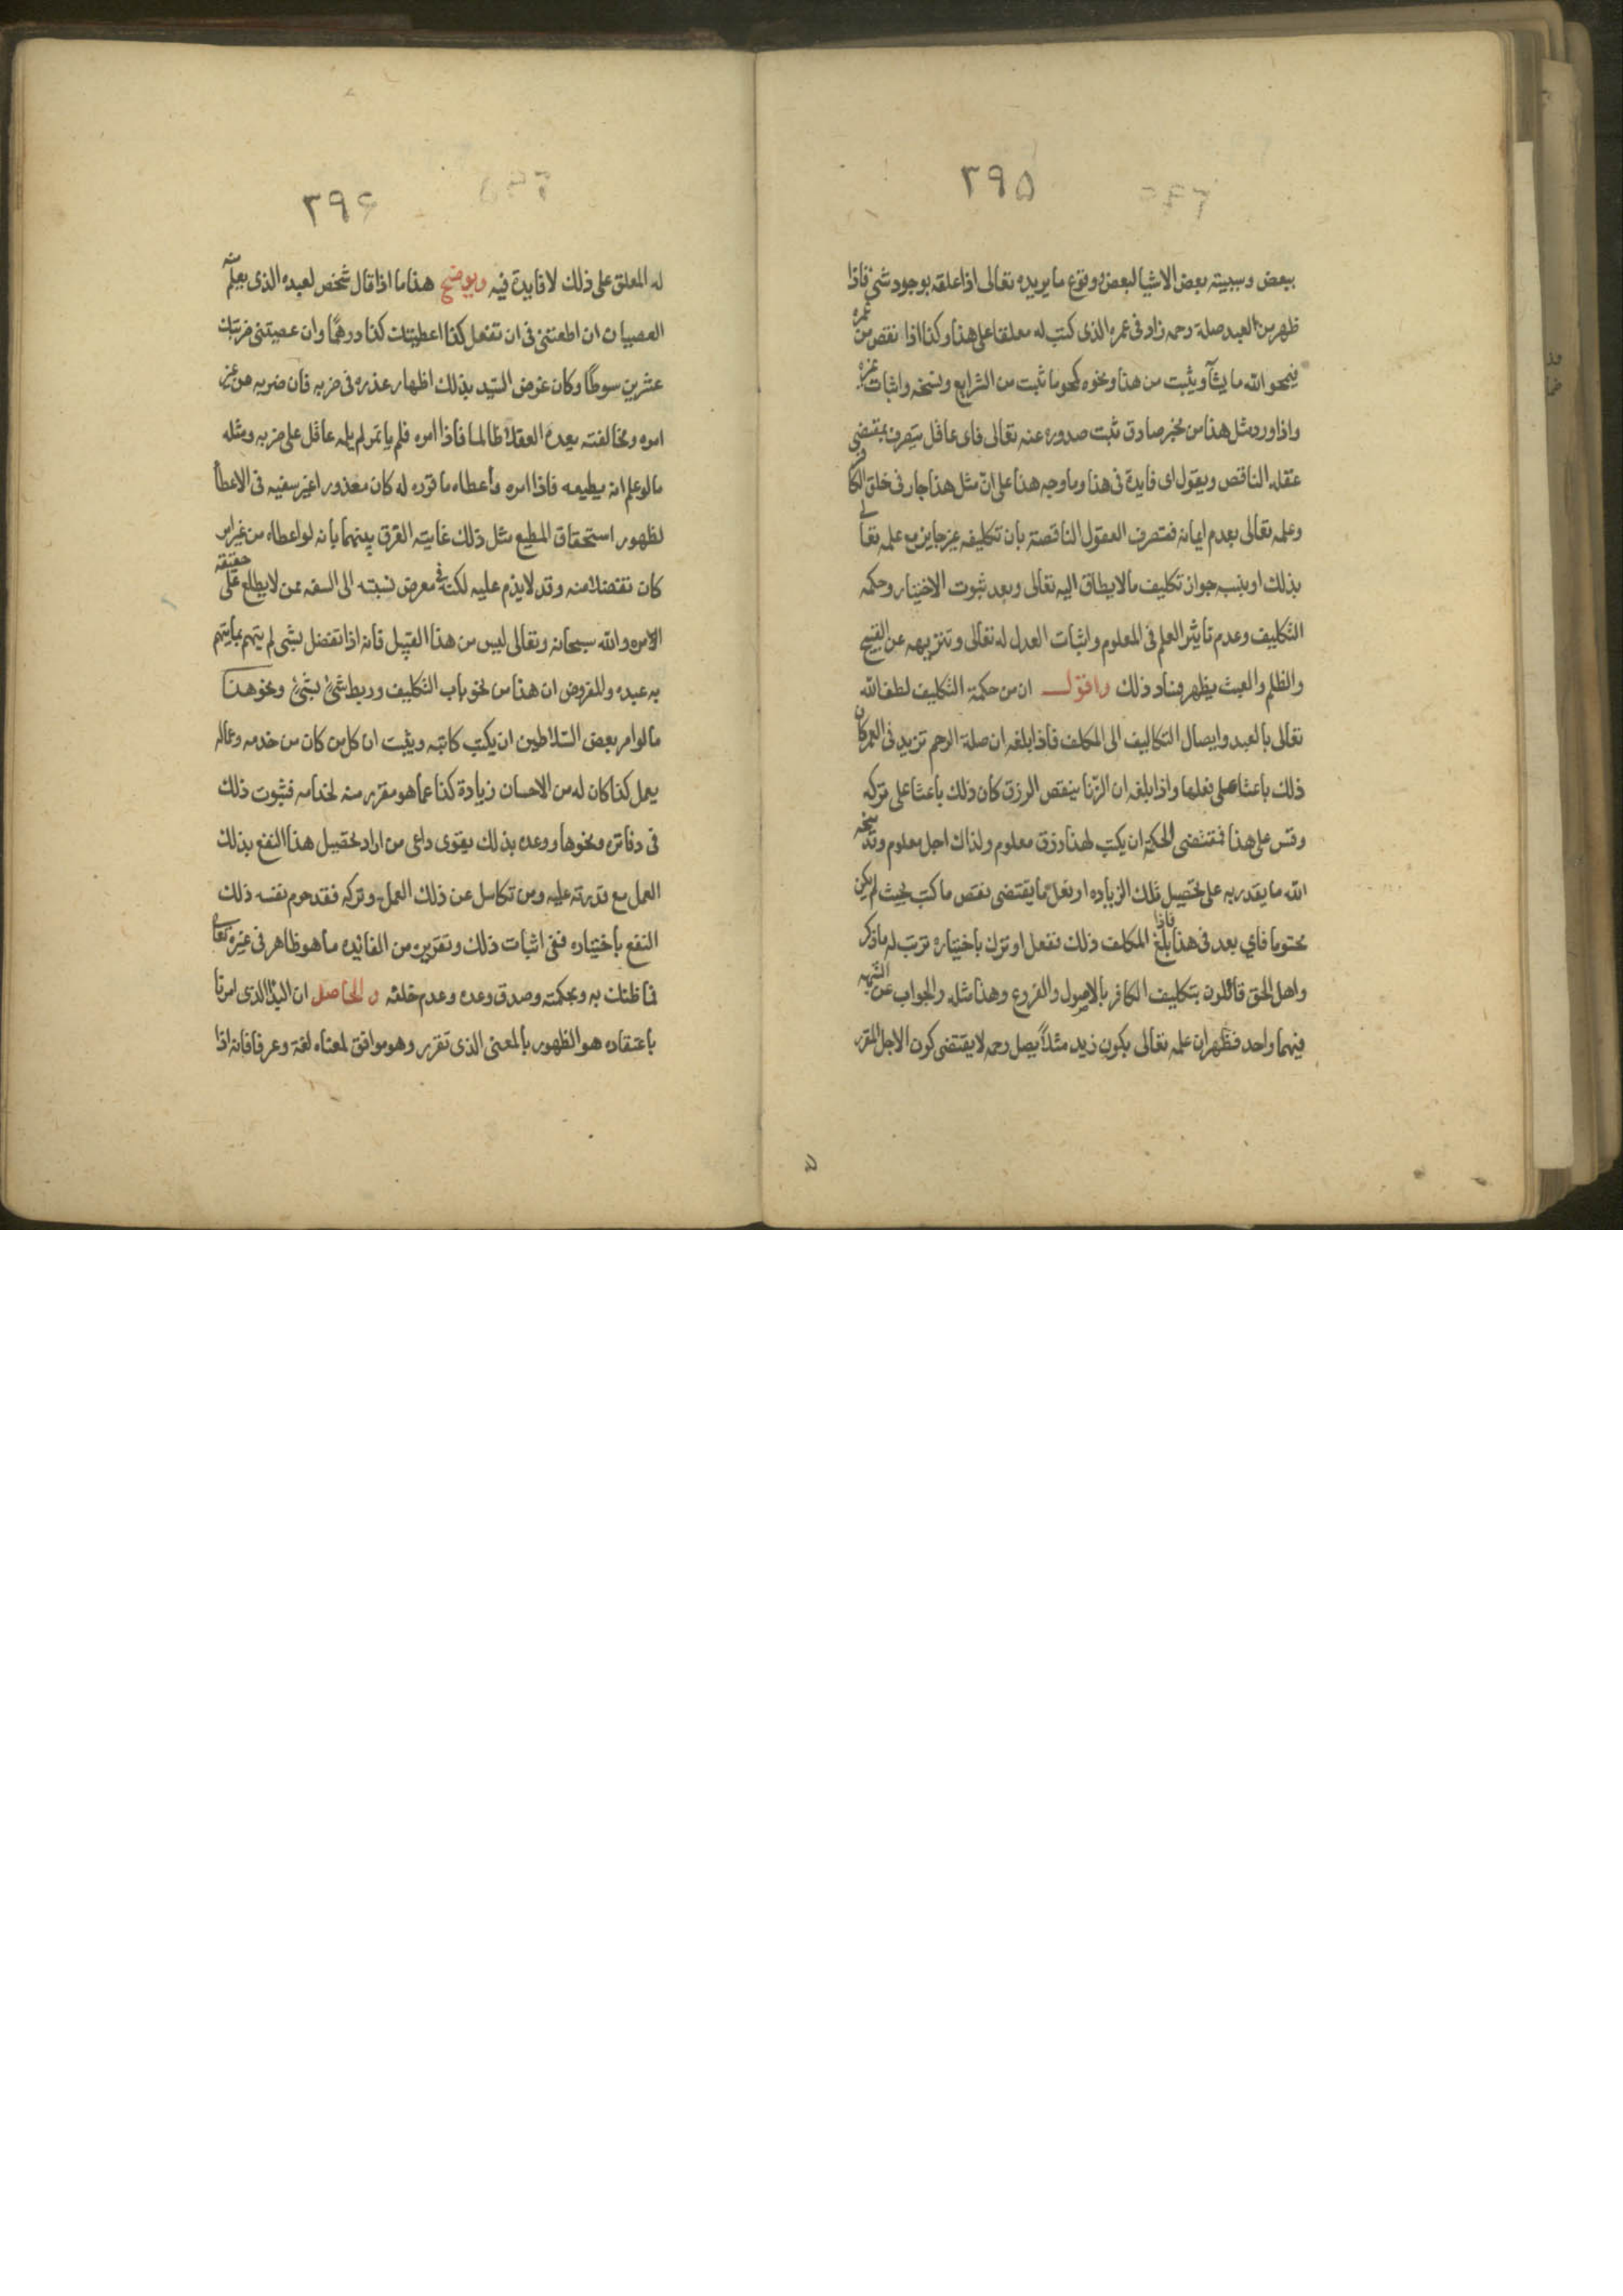 ۳۹۵
ببعض وسببيته بعض الاشيا لبعض ووقوع ما يريده تعالى اذا علقه بوجود شئ فاذا
ظهر من العبد صلة رحمه زاد فى عمره الذى كتب له معلقا على هذا وكذا اذا نقص من عمره
فيمحو الله ما يشآ ويثبت من هذا ونحوه كمحو ما ثبت من الشرايع ونسخه واثبات غيره
واذا ورد مثل هذا من مخبر صادق ثبت صدوره عنه تعالى فاى عاقل يتصرف بمقتضى
عقله الناقص ويقول اى فايدة فى هذا وما وجه هذا على انّ مثل هذا جار فى خلق الكافر
وعلمه تعالى بعدم ايمانه فتصرف العقول الناقصة بان تكليفه غير جايز مع علمه تعالى
بذلك او ينسب جواز تكليف ما لا يطاق اليه تعالى وبعد ثبوت الاختيار وحكمه
التكليف وعدم تاثير العلم فى المعلوم واثبات العدل له تعالى وتنزيهه عن القبيح
والظلم والعبث يظهر فساد ذلك واقول ان من حكمة التكليف لطف الله
تعالى بالعبد وايصال التكاليف الى المكلف فاذا بلغه ان صلة الرحم تزيد فى العمر كان
ذلك باعثا على فعلها واذا بلغه ان الزنا ينقص الرزق كان ذلك باعثا على تركه
وقس على هذا فمقتضى الحكمة ان يكتب لهذا رزق معلوم ولذاك اجل معلوم وقد منحه
الله ما يقدر به على تحصيل تلك الزياده او فعل ما يقتضى نقص ما كتب بحيث لم يكن
محتوما فاي بعد فى هذا فاذا بلغ المكلف ذلك ففعل او ترك باختياره ترتب له ما ذكر
واهل الحق قائلون بتكليف الكافر بالاصول والفروع وهذا مثله والجواب عن الشبهه
فيهما واحد فظهر ان علمه تعالى بكون زيد مثلاً يصل رحمه لا يقتضى كون الاجل المقرر
۳۹۶
له المعلق على ذلك لا فايدة فيه ويوضح هذا ما اذا قال شخص لعبده الذى يعلم منه
العصيان ان اطعتنى فى ان تفعل كذا اعطيتك كذا درهمًا وان عصيتنى ضربتك
عشرين سوطًا وكان غرض السّيد بذلك اظهار عذره فى ضربه فان ضربه من غير
امره ومخالفته يعده العقلآ ظالما فاذا امره فلم ياتمر لم يلمه عاقل على ضربه ومثله
ما لو علم انه يطيعه فاذا امره واعطاه ما قرره له كان معذورا غير سفيه فى الاعطآ
لظهور استحقاق المطيع مثل ذلك غايته الفرق بينهما بانه لو اعطاه من غير امر
كان تفضلا منه وقد لا يذم عليه لكنه فى معرض نسبته الى السفه ممن لا يطلع على حقيقة
الامر والله سبحانه وتعالى ليس من هذا القبيل فانه اذا تفضل بشى لم يتهم بما يتهم
به عبده والمفروض ان هذا من نحو باب التكليف وربط شئ بشئ ونحو هذا
ما لو امر بعض السّلاطين ان يكتب كاتبه ويثبت ان كل من كان من خدمه وعماله
يعمل كذا كان له من الاحسان زيادة كذا عما هو مقرر منه لخدامه فثبوت ذلك
فى دفاتره ونحوها ووعده بذلك يقوى داعى من اراد تحصيل هذا النفع بذلك
العمل مع قدرته عليه ومن تكاسل عن ذلك العمل وتركه فقد حرم نفسه ذلك
النفع باختياره ففى اثبات ذلك وتقريره من الفايده ما هو ظاهر فى غيره تعالى
فما ظنك به وبحكمته وصدق وعده وعدم خلفه والحاصل ان البدآ الذى امرنا
باعتقاده هو الظهور بالمعنى الذى تقرر وهو موافق لمعناه لغة وعرفا فانه اذا